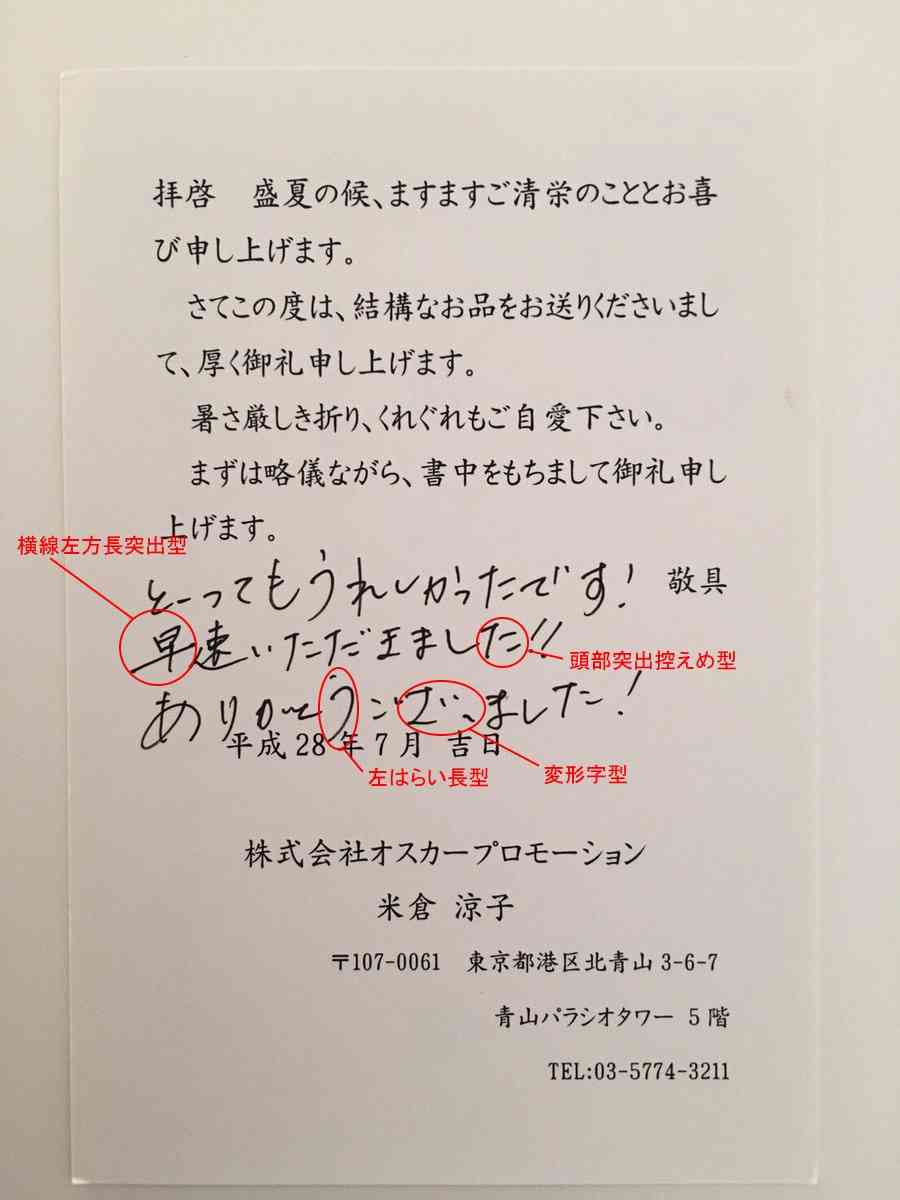 拝啓　盛夏の候、ますますご清栄のこととお喜
び申し上げます。
さてこの度は、結構なお品をお送りくださいまし
て、厚く御礼申し上げます。
暑さ厳しき折り、くれぐれもご自愛下さい。
まずは略儀ながら、書中をもちまして御礼申し
上げます。
横線左方長突出型
敬具
とーってもうれしかったです!
早速いただきました!!
頭部突出控えめ型
ありがとうございました!
平成28年7月 吉日
左はらい長型
変形字型
株式会社オスカープロモーション
米倉 涼子
〒107-0061　東京都港区北青山3-6-7
青山パラシオタワー 5階
TEL:03-5774-3211